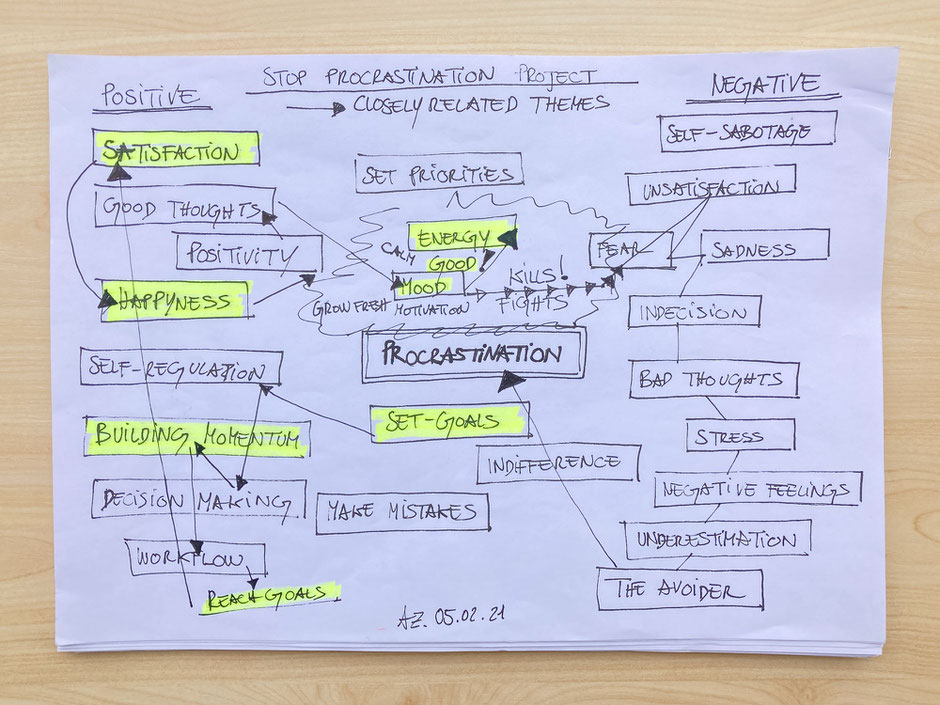 STOP PROCRASTINATION PROJECT
→ CLOSELY RELATED THEMES
POSITIVE
SATISFACTION
GOOD THOUGHTS
POSITIVITY
HAPPYNESS
SELF-REGULATION
BUILDING MOMENTUM
DECISION MAKING
WORKFLOW
REACH GOALS
SET PRIORITIES
CALM
ENERGY
GOOD !
MOOD
KILLS!
FIGHTS
GROW FRESH MOTIVATION
PROCRASTINATION
SET-GOALS
INDIFFERENCE
MAKE MISTAKES
AZ. 05.02.21
NEGATIVE
SELF-SABOTAGE
UNSATISFACTION
FEAR
SADNESS
INDECISION
BAD THOUGHTS
STRESS
NEGATIVE FEELINGS
UNDERESTIMATION
THE AVOIDER